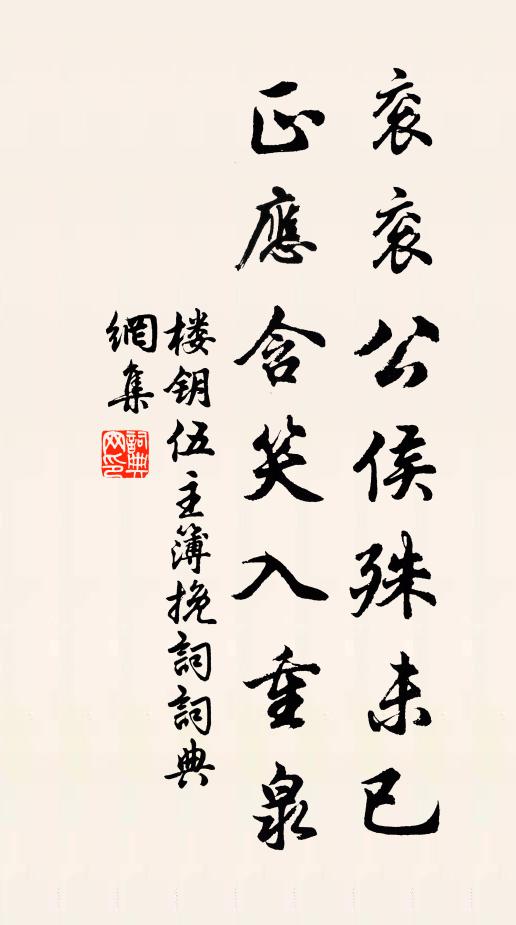 衮衮公侯殊未已
正應含笑入重泉
楼钥伍主簿挽词詞典
網集
詞典
网印